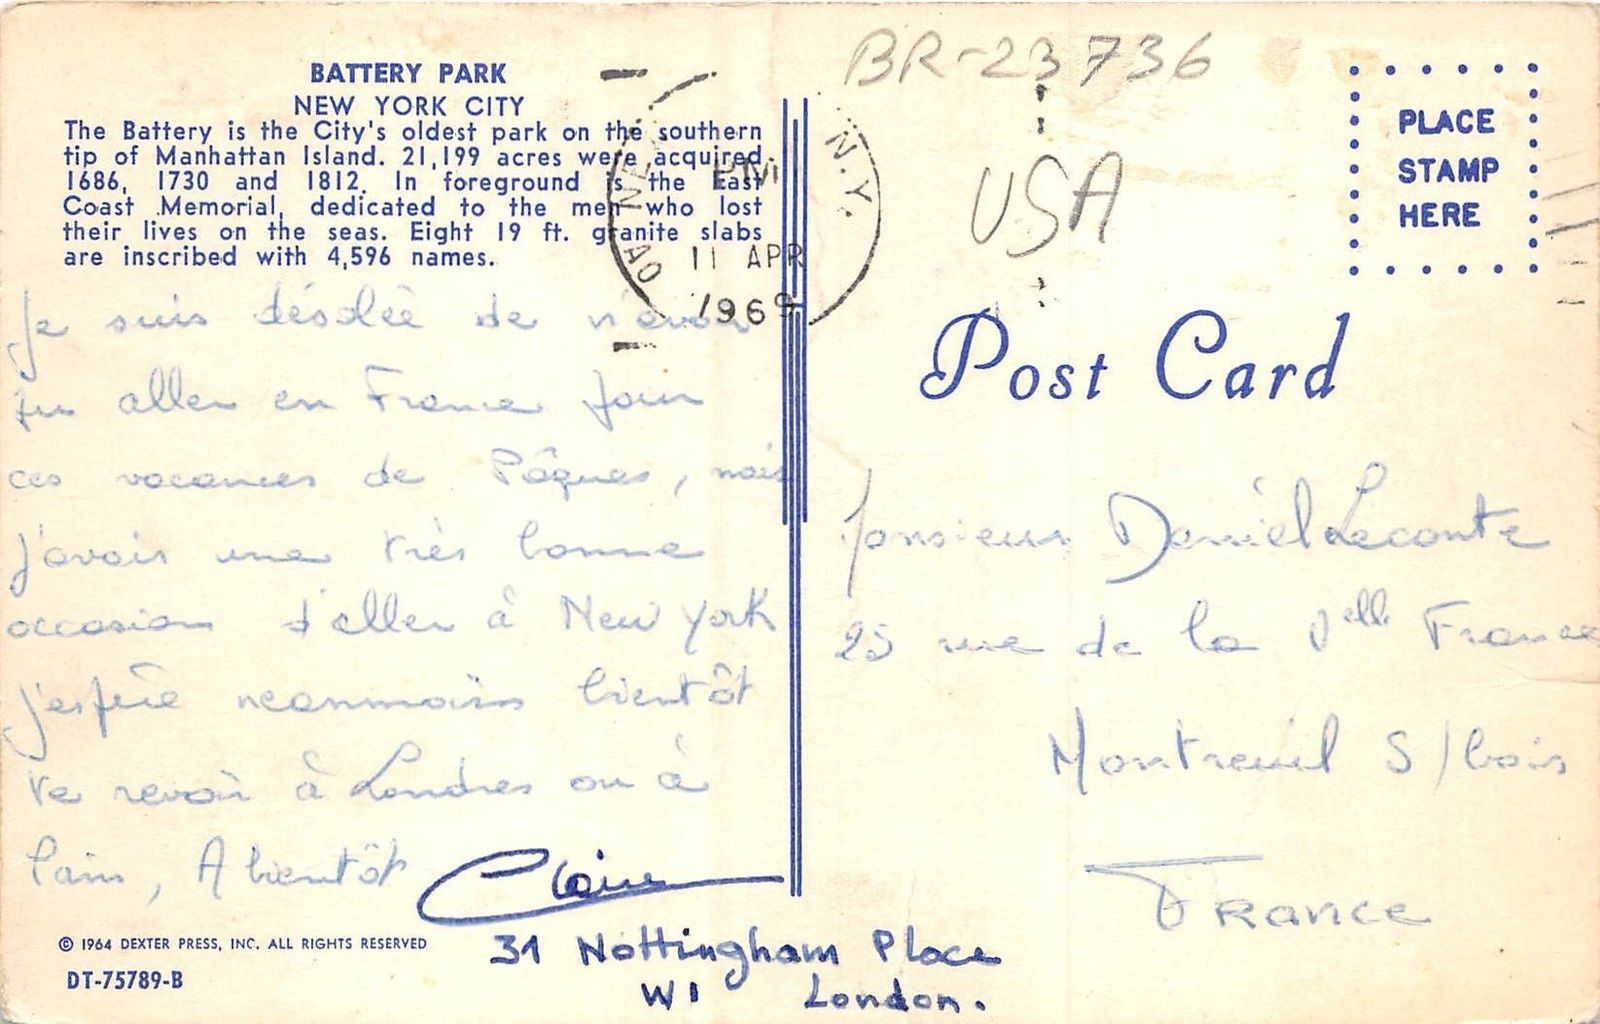 BATTERY PARK
NEW YORK CITY
The Battery is the City's oldest park on the southern
tip of Manhattan Island. 21,199 acres were acquired
1686, 1730 and 1812. In foreground is the East
Coast Memorial, dedicated to the men who lost
their lives on the seas. Eight 19 ft. granite slabs
are inscribed with 4,596 names.
Je suis désolée de n'avoir
pu aller en France pour
ces vacances de Pâques, mais
j'avais une très bonne
occasion d'aller à New York
j'espère neanmoins bientôt
te revoir à Londres ou à
Paris, A bientôt
Claire
31 Nottingham Place
W1 London.
© 1964 DEXTER PRESS, INC. ALL RIGHTS RESERVED
DT-75789-B
N.Y.
PM
11 APR
1969
BR-23736
USA
PLACE
STAMP
HERE
Post Card
Monsieur Daniel Leconte
25 rue de la Nelle France
Montreuil S/bois
France